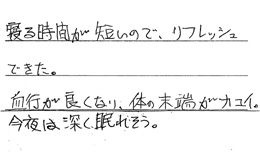 寝る時間が短いので、リフレッシュ
できた。
血行が良くなり、体の末端がオコイ。
今夜は深く眠れそう。